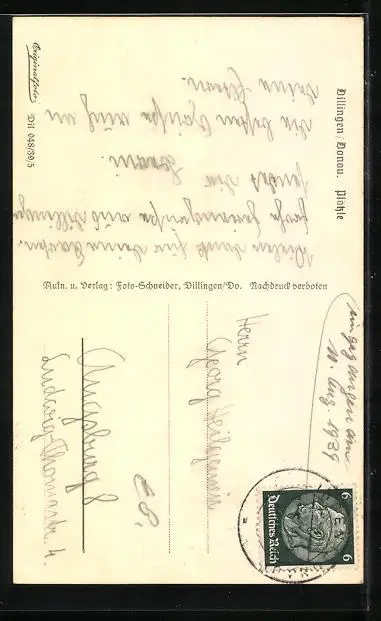 Dillingen/Donau. Plätzle
Vielen Dank für deine Karten.
frohe Feriengrüße aus Dillingen
sendet Dir Erwin.
Die besten Grüße auch an
deine Eltern.
Originalfoto
Dil 048/39,5
Aufn. u. Verlag: Foto-Schneider, Dillingen/Do. Nachdruck verboten
eingegangen am
11. Aug. 1939
Herrn
Georg
Augsburg 8
Ludwig-Thomastr. 4.
6
6
Deutsches Reich